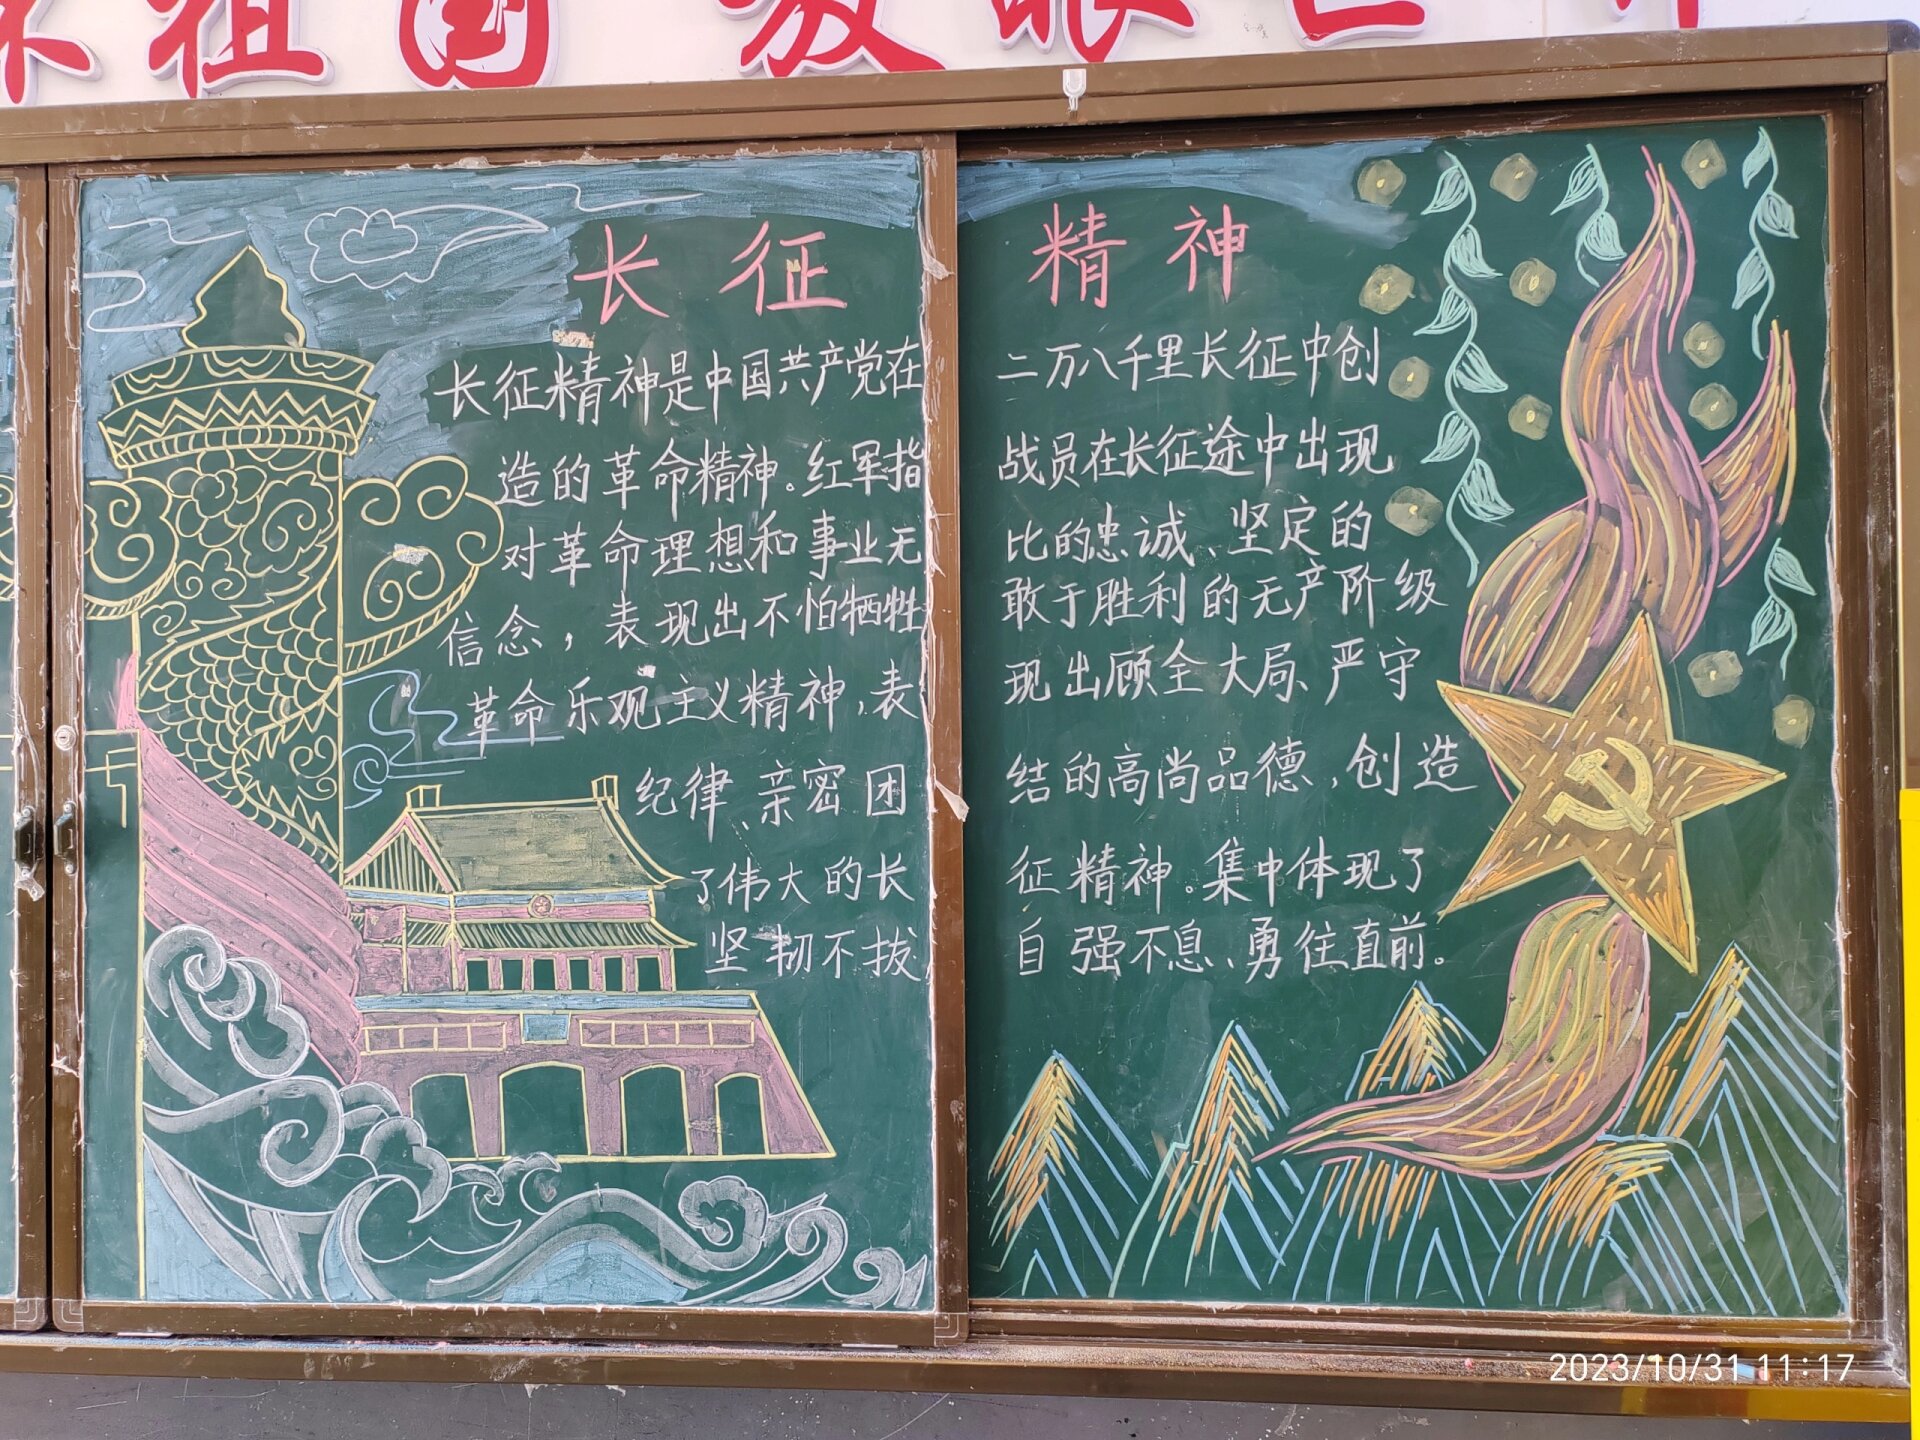 祖国 放眼
长征精神
长征精神是中国共产党在二万八千里长征中创
造的革命精神。红军指战员在长征途中出现
对革命理想和事业无比的忠诚、坚定的
信念，表现出不怕牺牲敢于胜利的无产阶级
革命乐观主义精神，表现出顾全大局、严守
纪律、亲密团结的高尚品德，创造
了伟大的长征精神。集中体现了
坚韧不拔，自强不息、勇往直前。
2023/10/31 11:17